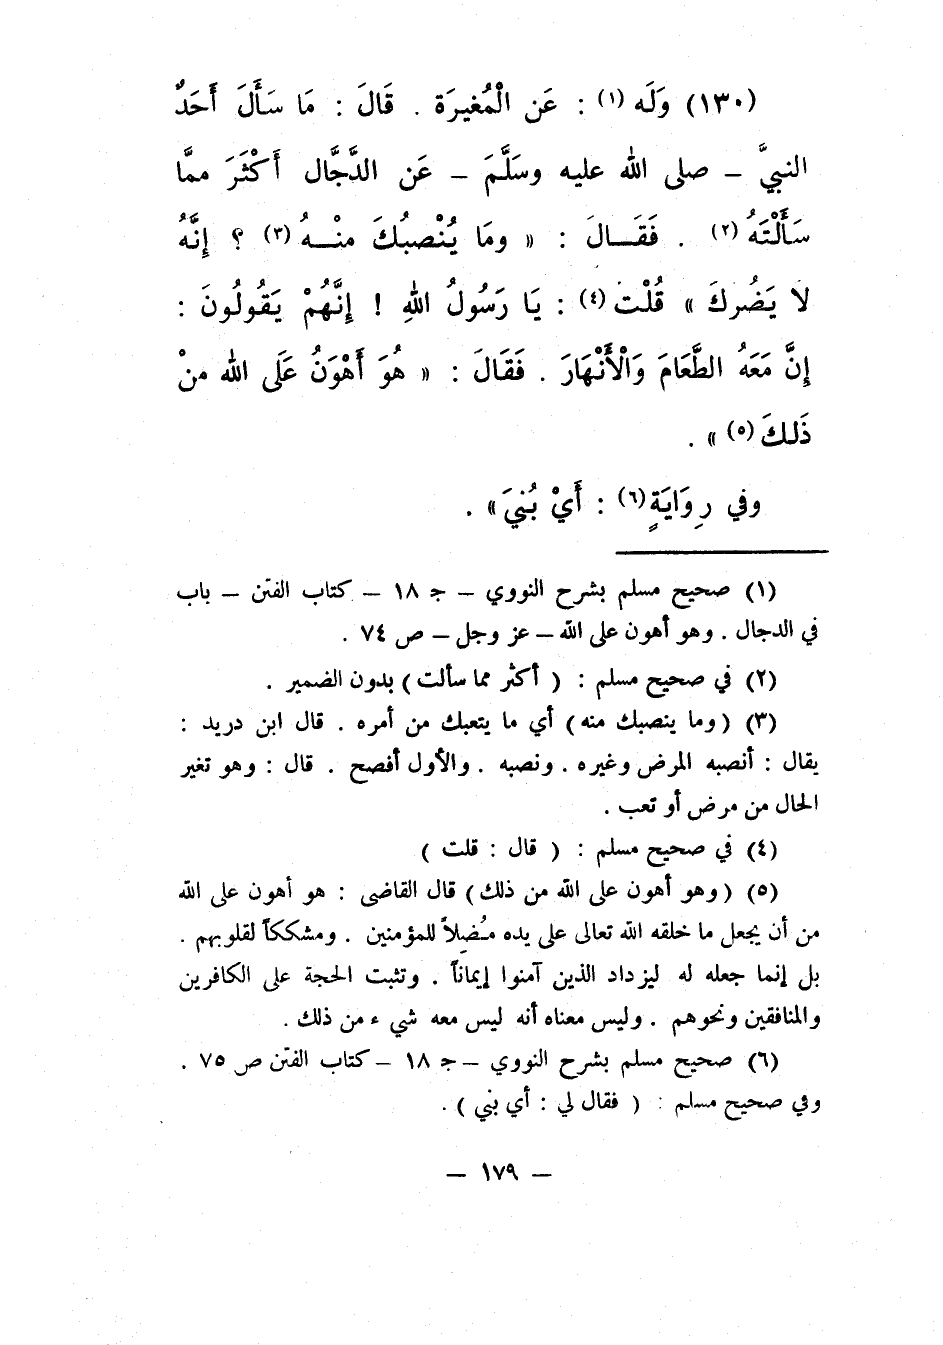 (١٣٠) وَلَه (١) : عَن الْمُغيرَة . قَالَ : مَا سَأَلَ أَحَدٌ
النبيَّ – صلى الله عليه وسَلَّمَ – عَن الدَّجَّال أَكْثَرَ ممَّا
سَأَلْتَهُ (٢) . فَقَــالَ : « ومَا يُنْصبُكَ منْــهُ (٣) ؟ إنَّهُ
لا يَضُركَ » قُلْت (٤) : يَا رَسُولُ اللهِ ! إنَّهُمْ يَقُولُونَ :
إنَّ مَعَهُ الطَّعَامَ وَالْأَنْهَارَ . فَقَالَ : « هُوَ أَهْوَنُ عَلَى الله منْ
ذَلكَ (٥) » .
وفي رِوَايَةٍ (٦) : أَيْ بُنيَ» .
(١) صحيح مسلم بشرح النووي – جـ ١٨ – كتاب الفتن – باب
في الدجال . وهو أهون على الله – عز وجل – ص ٧٤ .
(٢) في صحيح مسلم : ( أكثر مما سألت ) بدون الضمير .
(٣) (وما ينصبك منه) أي ما يتعبك من أمره . قال ابن دريد :
يقال : أنصبه المرض وغيره . ونصبه . والأول أفصح . قال : وهو تغير
الحال من مرض أو تعب .
(٤) في صحيح مسلم : ( قال : قلت )
(٥) (وهو أهون على الله من ذلك) قال القاضى : هو أهون على الله
من أن يجعل ما خلقه الله تعالى على يده مُضِلاً للمؤمنين . ومشككاً لقلوبهم .
بل إنما جعله له ليزداد الذين آمنوا إيماناً . وتثبت الحجة على الكافرين
والمنافقين ونحوهم . وليس معناه أنه ليس معه شيء من ذلك .
(٦) صحيح مسلم بشرح النووي – جـ ١٨ – كتاب الفتن ص ٧٥ .
وفي صحيح مسلم : ( فقال لي : أي بني ) .
– ١٧٩ –